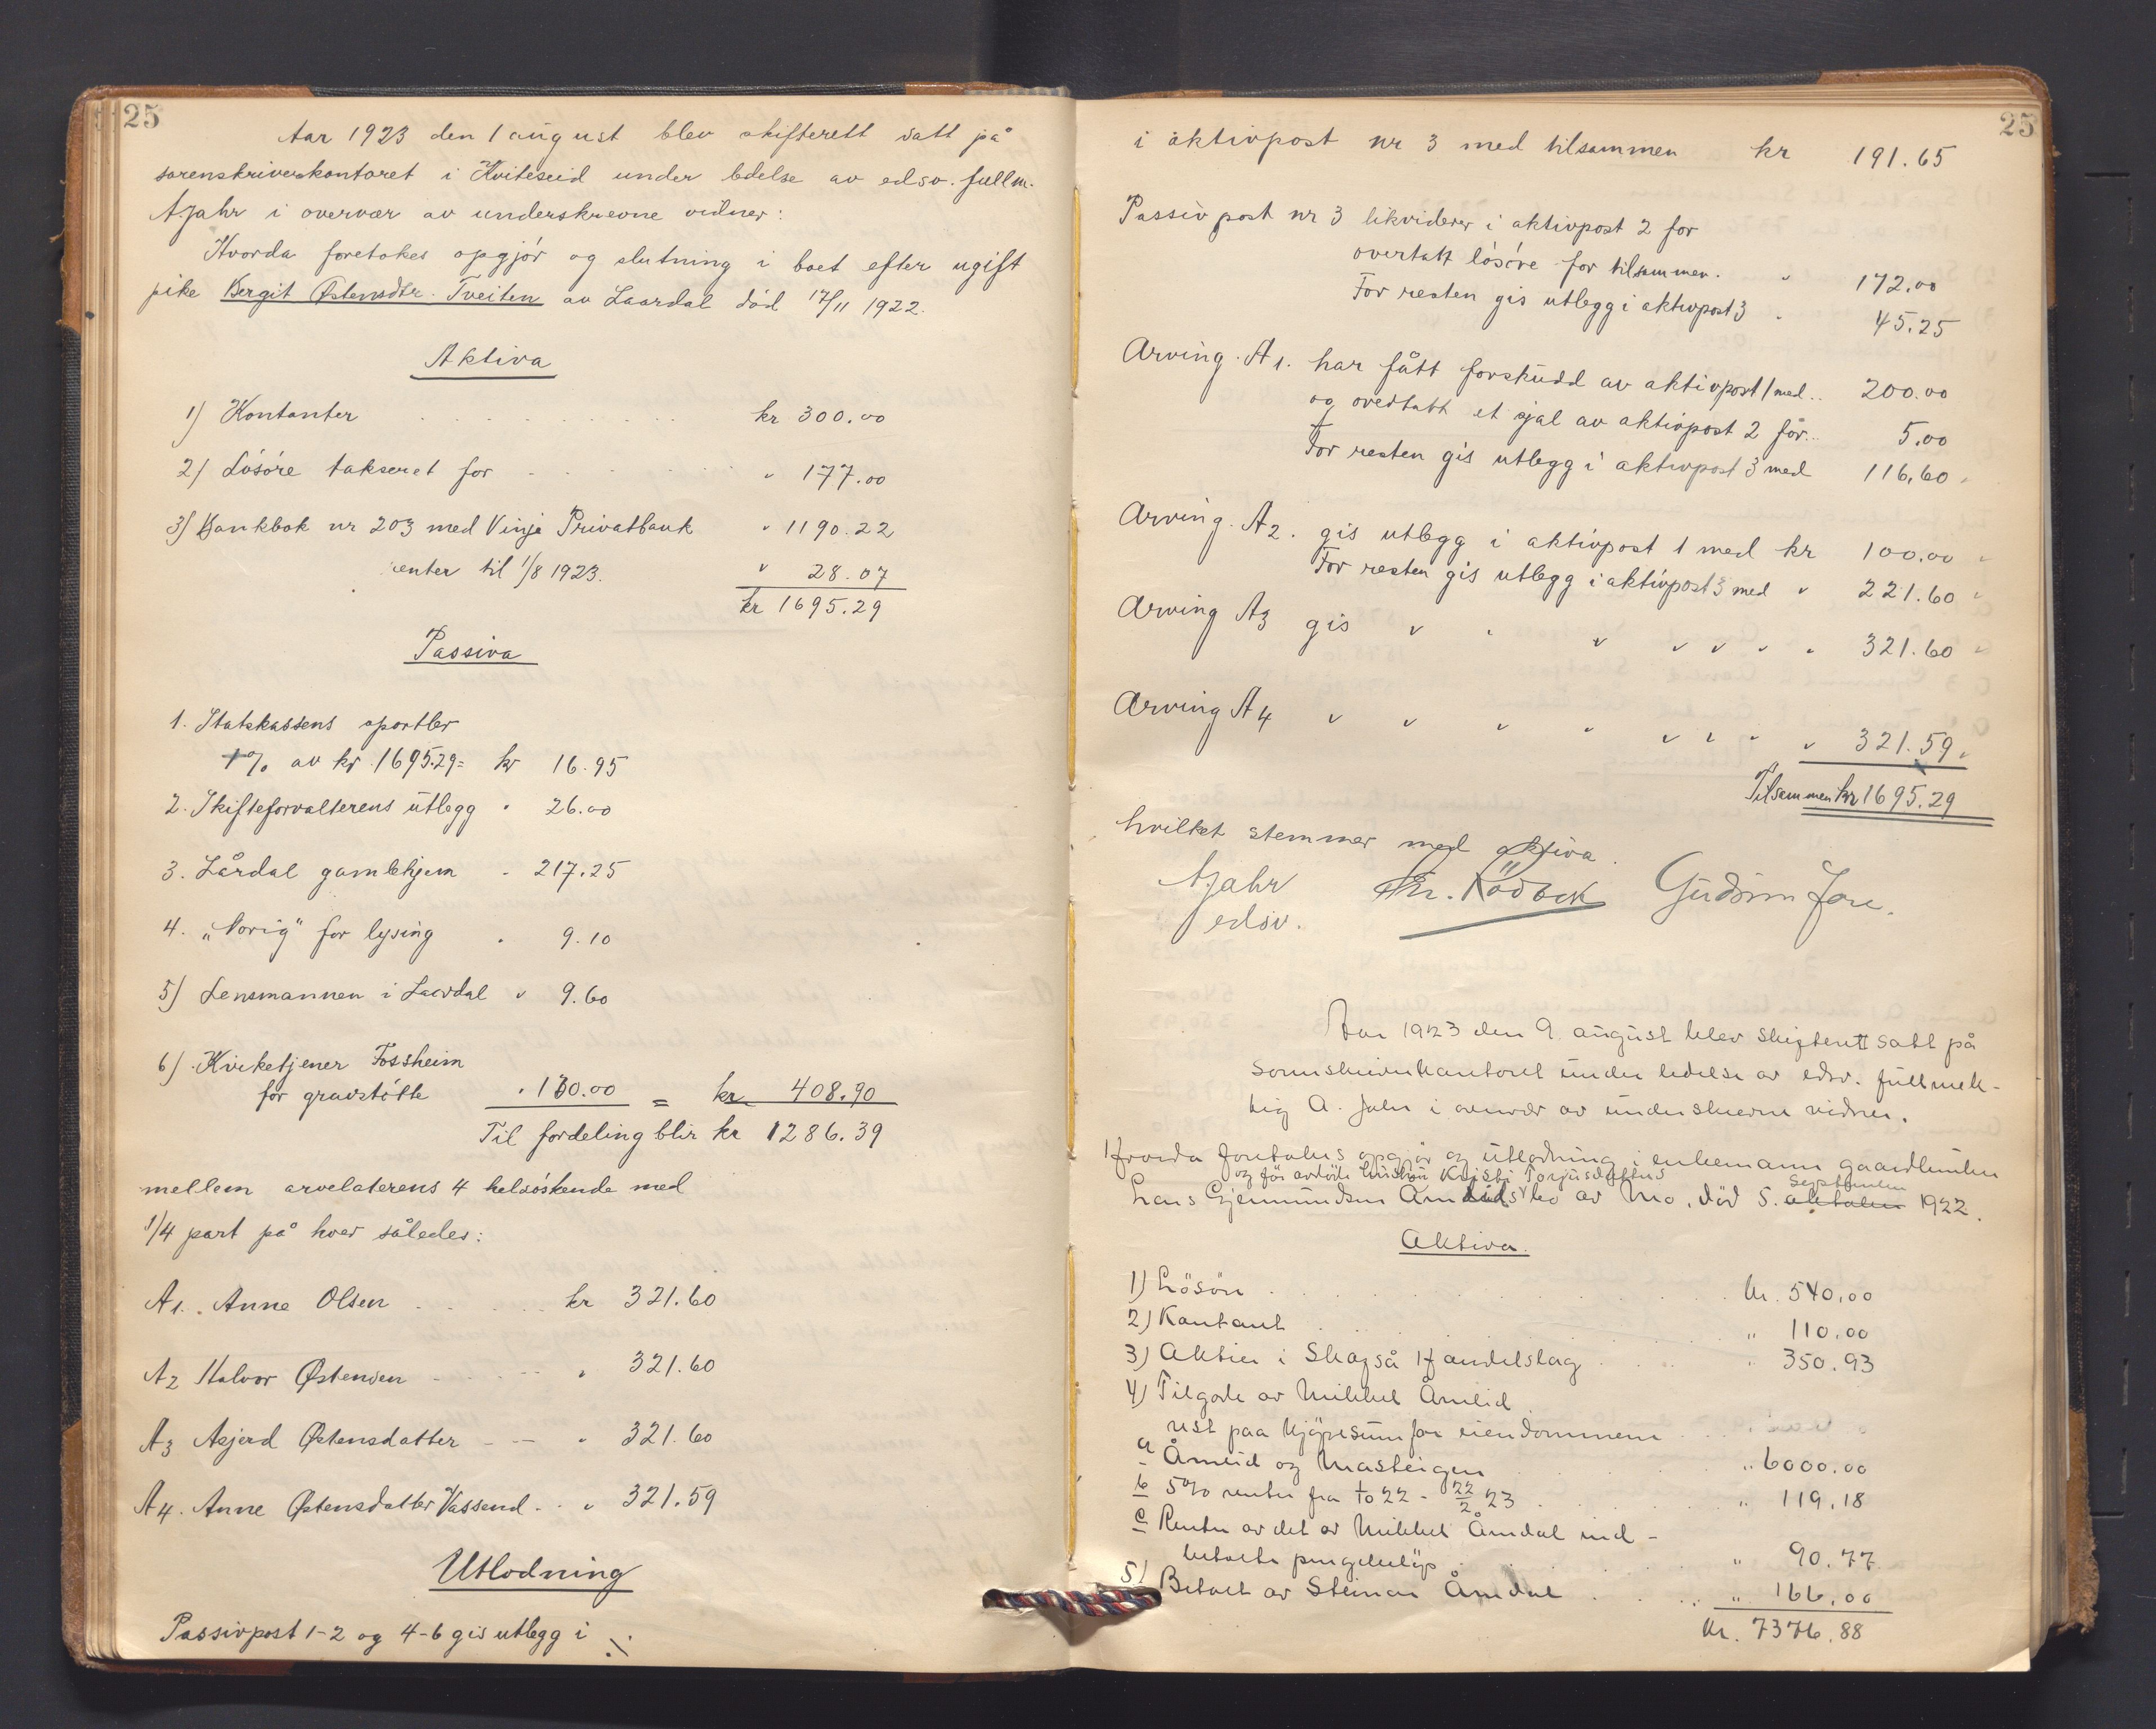 25
Aar 1923 den 1 august blev skifterett satt på
sorenskriverkontoret i Kviteseid under ledelse av edsv. fullm.
A Jahr i overvær av underskrevne vidner:
Hvorda foretokes opgjör og slutning i boet efter ugift
pike Bergit Østensdtr. Tveiten av Laardal död 17/11 1922.
Aktiva
1) Kontanter . . . . . . . . . . kr 300.00
2) Lösöre takseret for . . . . . . " 177.00
3) Bankbok nr 203 med Vinje Privatbank " 1190.22
renter til 1/8 1923. " 28.07
kr 1695.29
Passiva
1. Statskassens sportler
1% av kr 1695.29 = kr 16.95
2. Skifteforvalterens utlegg " 26.00
3. Lårdal gamlehjem " 217.25
4. „Norig" for lysing " 9.10
5) Lensmannen i Laardal " 9.60
6) Kirketjener Fossheim
for gravstötte " 130.00 = kr 408.90
Til fordeling blir kr 1286.39
mellem arvelaterens 4 helsöskende med
1/4 part på hver således:
A1. Anne Olsen . . . . . kr 321.60
A2 Halvor Østensen - - - - - " 321.60
A3 Asjerd Østensdatter - - - " 321.60
A4. Anne Østensdatter Vassend . . " 321.59
Utlodning
Passivpost 1-2 og 4-6 gis utlegg i ./.
25
i aktivpost nr 3 med tilsammen kr 191.65
Passivpost nr 3 likviderer i aktivpost 2 for
overtatt lösöre for tilsammen. " 172.00
For resten gis utlegg i aktivpost 3 " 45.25
Arving. A1. har fått forskudd av aktivpost 1 med.. 200.00
og overtatt et sjal av aktivpost 2 for.. 5.00
For resten gis utlegg i aktivpost 3 med 116.60
Arving. A2. gis utlegg i aktivpost 1 med kr 100.00
For resten gis utlegg i aktivpost 3 med " 221.60
Arving A3 gis " " " " " " " 321.60
Arving A4 " " " " " " " " 321.59
Tilsammen kr 1695.29
hvilket stemmer med aktiva.
A Jahr
edsv.
Gudrun
Aar 1923 den 9. august blev skifterett satt på
sorenskriverkontoret under ledelse av edsv. fullmek-
tig A. Jahr i overvær av underskrevne vidner.
Hvorda foretokes opgjör og utlodning i enkemann gaardbruker
og för avdöde hustru Kristi Torjusdatters
Lars Gjermundsen Åmlids bo av Mo, död 5. oktober 1922.
September
Aktiva.
1) Lösöre . . . . . . . . . . kr. 540.00
2) Kontant . . . . . . . . . " 110.00
3) Aktier i Skafså Handelslag . . . . " 350.93
4) Tilgode av Mikkel Åmlid
rest paa kjöpesum for eiendommene
a Åmlid og Masteigen . . . " 6000.00
b 5% renter fra 1/10 22 - 22/2 23 . . . . " 119.18
c Renter av det av Mikkel Åmdal ind-
betalte pengebelöp . . . . . " 90.77
5) Betalt av Steinar Åmdal . . . " 166.00
kr. 7376.88